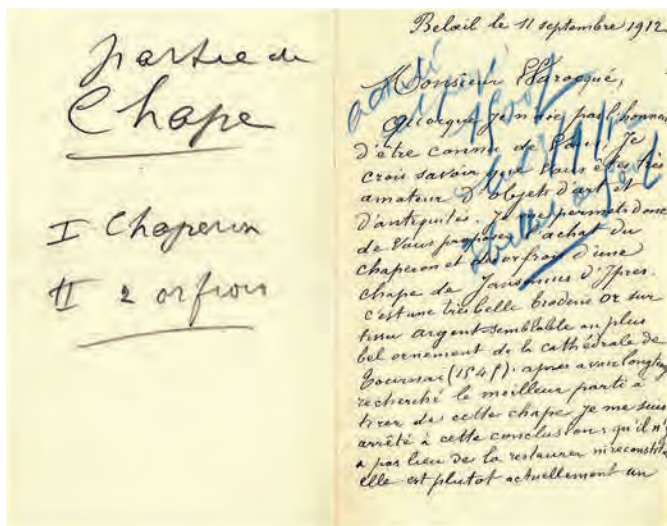 partie de
Chape
I Chaperon
II 2 orfrois
Belœil le 11 septembre 1912
Monsieur Warocqué,
quoique je n'aie pas l'honneur
d'être connu de Vous, Je
crois savoir que Vous êtes très
amateur d'objets d'art et
d'antiquités. Je me permets donc
de Vous proposer l'achat du
chaperon et de orfrois d'une
chape de Jansenius d'Ypres.
c'est une très belle broderie or sur
tissu argent semblable au plus
bel ornement de la cathédrale de
Tournai (1548). après avoir longtemps
recherché le meilleur parti à
tirer de cette chape je me suis
arrêté à cette conclusion: qu'il n'y
a pas lieu de la restaurer ni reconstituer
elle est plutot actuellement un